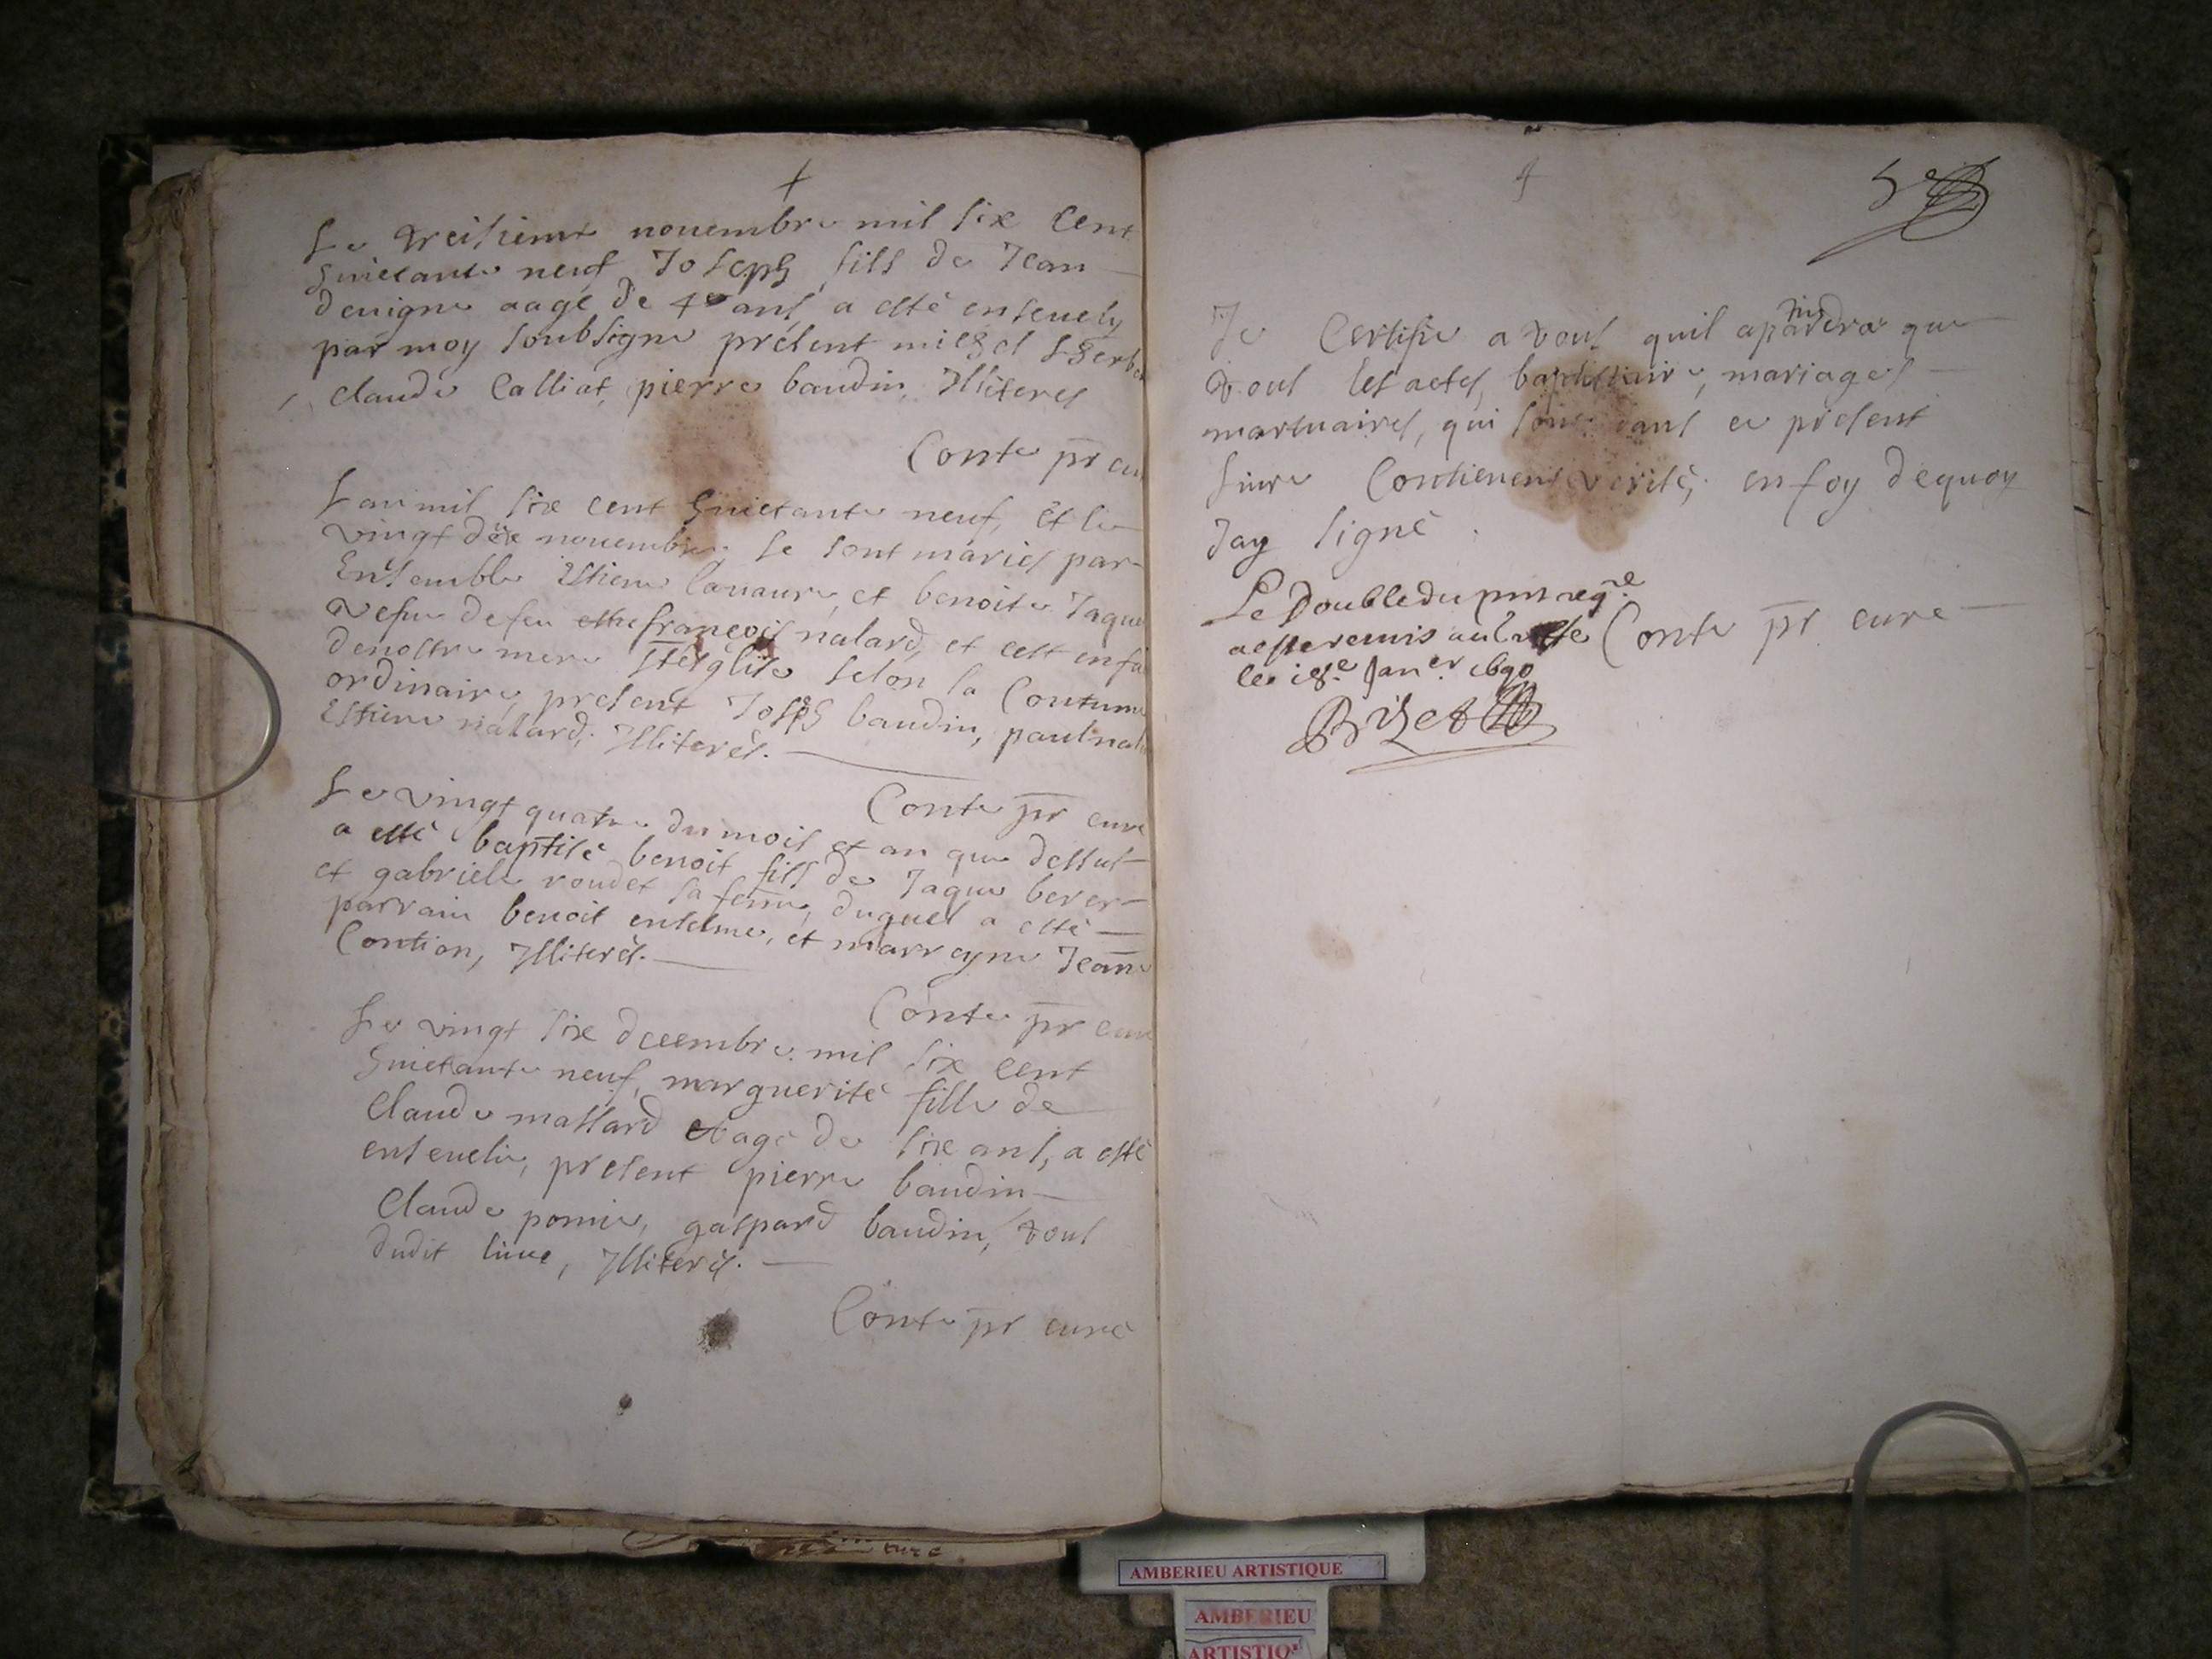 Le treisieme novembre mil six cent
huictante neuf Joseph fils de Jean
devigne aagé de 4 ans a esté ensevely
par moy soubsigne présent michel
claude Calliat, pierre baudin, Illiterés
Conte pr cu
Lan mil six cent huictante neuf, et le
vingt deux novembre se sont mariés par
Ensemble Estiene lavaure, et benoite Jaque
vefve de feu francois nalard, et cest enfa
de nostre mere Ste église selon la Coutume
ordinaire, présent Joseph baudin, paul nal
Estiene nalard, Illiterés.
Conte pr cure
Le vingt quatre du mois et an que dessus
a esté baptisé benoit fils de Jaque berer
et gabriele roudet sa feme, duquel a esté
parrain benoit enselme, et marreyne Jeane
Contion, Illiterés.
Conte pr cure
Le vingt six decembre mil six cent
huictante neuf, marguerite fille de
Claude massard agé de six ans, a esté
ensevelie, présent pierre baudin
Claude pomie, gaspard baudin, tous
dudit lieue, Illiterés.
Conte pr curé
5e
Je Certifie a tous quil apartiendra que
tous les actes, baptistaire, mariages
martuaires, qui sont dans ce présent
livre Contienent verité, en foy dequoy
Jay signé
Le Double du pnt regre
a este remis au Greffe
Conte pr cure
le 18e Janer 1690
Bizet
AMBERIEU ARTISTIQUE
AMBERIEU
ARTISTIQ